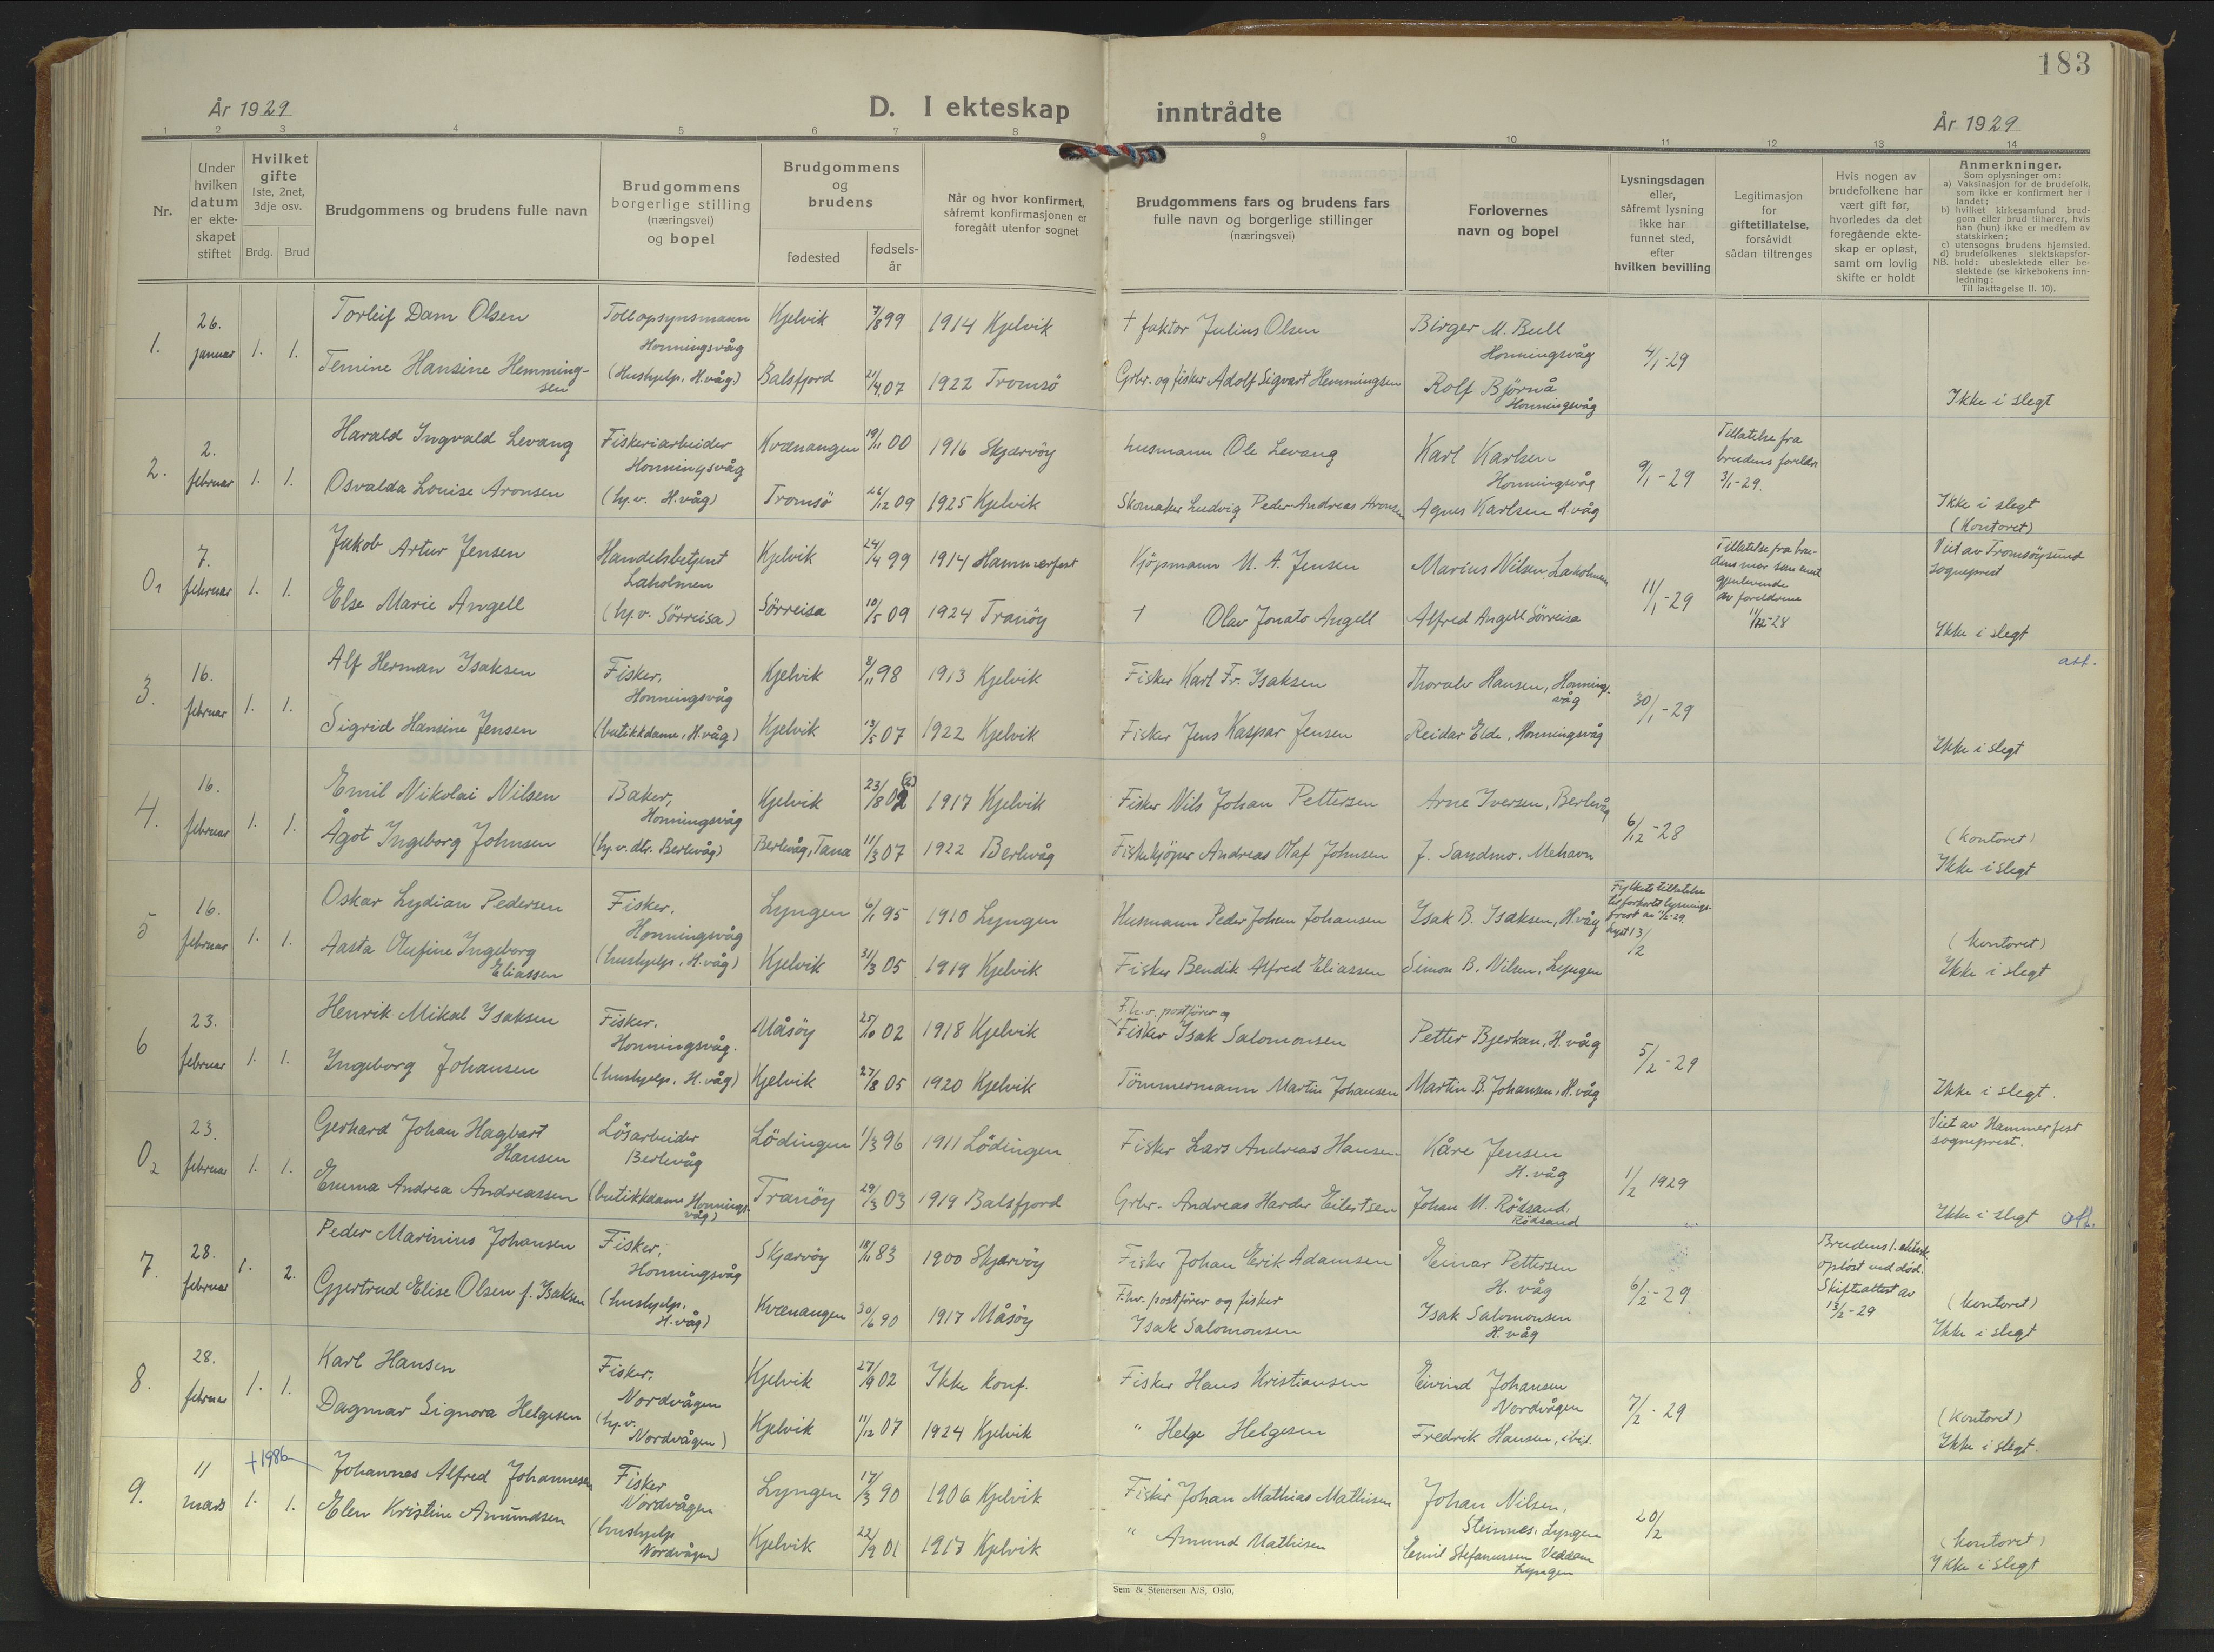 183
År 1929
D. I ekteskap inntrådte
År 1929
1 2 3 4 5 6 7 8 9 10 11 12 13 14
Nr.
Under hvilken datum er ekteskapet stiftet
Hvilket gifte
1ste, 2net, 3dje osv.
Brdg. Brud
Brudgommens og brudens fulle navn
Brudgommens borgerlige stilling (næringsvei) og bopel
Brudgommens og brudens
fødested
fødselsår
Når og hvor konfirmert, såfremt konfirmasjonen er foregått utenfor sognet
Brudgommens fars og brudens fars fulle navn og borgerlige stillinger (næringsvei)
Forlovernes navn og bopel
Lysningsdagen eller, såfremt lysning ikke har funnet sted, efter hvilken bevilling
Legitimasjon for giftetillatelse, forsåvidt sådan tiltrenges
Hvis nogen av brudefolkene har vært gift før, hvorledes da det foregående ekteskap er opløst, samt om lovlig skifte er holdt
Anmerkninger.
Som oplysninger om:
a) Vaksinasjon for de brudefolk, som ikke er konfirmert her i landet;
b) hvilket kirkesamfund brudgom eller brud tilhører, hvis han (hun) ikke er medlem av statskirken;
c) utensogns brudens hjemsted.
d) brudefolkenes slektskapsforhold: ubeslektede eller beslektede (se kirkebokens innledning:
NB. Til iakttagelse II. 10).
1. 26. januar 1. 1.
Torleif Dam Olsen
Tollopsynsmann Honningsvåg
Kjelvik 7/8 99 1914 Kjelvik
† faktor Julius Olsen
Birger M. Bull Honningsvåg
4/1-29
Temine Hansine Hemmingsen
(Hushjelp, H.våg)
Balsfjord 21/4 07 1922 Tromsö
Grbr. og fisker Adolf Sigvart Hemmingsen
Rolf Björnå Honningsvåg
Ikke i slegt
2. 2. februar 1. 1.
Harald Ingvald Levang
Fiskeriarbeider Honningsvåg
Kvænangen 19/11 00 1916 Skjærvöy
husmann Ole Levang
Karl Karlsen Honningsvåg
9/1-29
Tillatelse fra brudens foreldre 3/1-29.
Osvalda Louise Aronsen
(hj.v. H.våg)
Tromsö 26/12 09 1925 Kjelvik
Skomaker Ludvig Peder Andreas Aronsen
Agnes Karlsen H.våg
Ikke i slegt
(Kontoret)
01 7. februar 1. 1.
Jakob Artur Jensen
Handelsbetjent Laholmen
Kjelvik 24/4 99 1914 Hammerfest
Kjöpmann M. A. Jensen
Marius Nilsen, Laholmen
11/1-29
Tillatelse fra brudens mor som enest gjenlevende av foreldrene 11/12-28
Viet av Tromsöysund sogneprest
Else Marie Angell
(hj.v. Sörreisa)
Sörreisa 10/5 09 1924 Tranöy
† Olav Jonato Angell
Alfred Angell Sörreisa
Ikke i slegt
3. 16. februar 1. 1.
Alf Herman Isaksen
Fisker, Honningsvåg
Kjelvik 8/11 98 1913 Kjelvik
Fisker Karl Fr. Isaksen
Thoralv Hansen, Honningsvåg
30/1-29
att.
Sigrid Hansine Jensen
(butikkdame, H.våg)
Kjelvik 13/5 07 1922 Kjelvik
Fisker Jens Kaspar Jensen
Reidar Elde, Honningsvåg
Ikke i slegt
4. 16. februar 1. 1.
Emil Nikolai Nilsen
Baker, Honningsvåg
Kjelvik 23/8 02 (2) 1917 Kjelvik
Fisker Nils Johan Pettersen
Arne Iversen, Berlevåg
6/12-28
Ågot Ingeborg Johnsen
(hj.v.dtr. Berlevåg)
Berlevåg, Tana 11/3 07 1922 Berlevåg
Fiskekjöper Andreas Olaf Johnsen
J. Sandmo. Mehavn
(kontoret)
Ikke i slegt
5 16. februar 1. 1.
Oskar Lydian Pedersen
Fisker, Honningsvåg
Lyngen 6/1 95 1910 Lyngen
Husmann Peder Johan Johansen
Isak B. Isaksen, H.våg
Fylkets tillatelse til forkortet lysningsfrist av 11/2-29. Lyst 13/2
Aasta Olufine Ingeborg Eliassen
(hushjelp, H.våg)
Kjelvik 31/3 05 1919 Kjelvik
Fisker Bendik Alfred Eliassen
Simon B. Nilsen, Lyngen
(kontoret)
Ikke i slegt
6 23. februar 1. 1.
Henrik Mikal Isaksen
Fisker, Honningsvåg.
Måsöy 25/10 02 1918 Kjelvik
F.h.v. postförer og Fisker Isak Salomonsen
Petter Bjerkan, H.våg
5/2-29
Ingeborg Johansen
(hushjelp, H.våg)
Kjelvik 27/8 05 1920 Kjelvik
Tömmermann Martin Johansen
Martin B. Johansen, H.våg
Ikke i slegt.
02 23. februar 1. 1.
Gerhard Johan Hagbart Hansen
Lösarbeider Berlevåg
Lödingen 1/3 96 1911 Lödingen
Fisker Lars Andreas Hansen
Kåre Jensen H.våg
1/2 1929
Viet av Hammerfest sogneprest.
Emma Andrea Andreassen
(butikkdame Honningsvåg)
Tranöy 29/3 03 1919 Balsfjord
Grbr. Andreas Harder Eilertsen
Johan M. Rödsand, Rödsand
Ikke i slegt att.
7. 28. februar 1. 2.
Peder Marinius Johansen
Fisker, Honningsvåg
Skjærvöy 18/11 83 1900 Skjærvöy
Fisker Johan Erik Adamsen
Einar Pettersen H.våg
6/2-29
Brudens 1. ektesk. oplöst ved död. Skifteattest av 13/2-29
Gjertrud Elise Olsen f. Isaksen
(hushjelp, H.våg)
Kvænangen 30/6 90 1917 Måsöy
F.hv. postförer og fisker Isak Salomonsen
Isak Salomonsen H.våg
(kontoret)
Ikke i slegt
8. 28. februar 1. 1.
Karl Hansen
Fisker, Nordvågen
Kjelvik 27/9 02 Ikke konf.
Fisker Hans Kristiansen
Eivind Johansen Nordvågen
7/2-29
Dagmar Signora Helgesen
(hj.v. Nordvågen)
Kjelvik 11/12 07 1924 Kjelvik
" Helge Helgesen
Fredrik Hansen, ibid.
(kontoret)
Ikke i slegt.
9. 11 mars 1. 1.
† 1986
Johannes Alfred Johannesen
Fisker Nordvågen
Lyngen 17/3 90 1906 Kjelvik
Fisker Johan Mathias Mathisen
Johan Nilsen, Steinnes, Lyngen
20/2
Elen Kristine Amundsen
(hushjelp Nordvågen)
Kjelvik 22/9 01 1917 Kjelvik
" Amund Mathisen
Emil Stefanussen Lyngen
(kontoret)
Ikke i slegt
Sem & Stenersen A/S, Oslo.